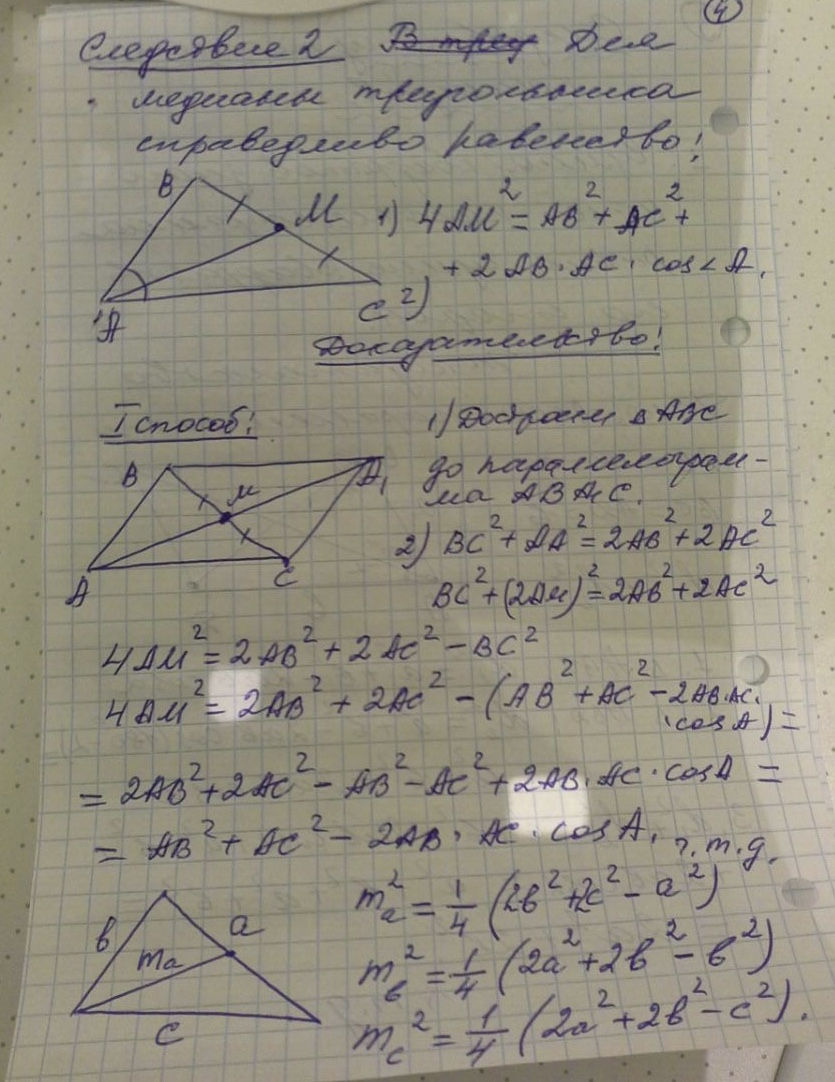 4
Следствие 2 В треу Для
медианы треугольника
справедливо равенство:
B
M
A
C
1) 4AM² = AB² + AC² +
+ 2AB · AC · cos∠A.
2)
Доказательство:
I способ:
B
M
A₁
A
C
1) Достроим △ABC
до параллелограм-
ма ABA₁C.
2) BC² + AA² = 2AB² + 2AC²
BC² + (2AM)² = 2AB² + 2AC²
4AM² = 2AB² + 2AC² − BC²
4AM² = 2AB² + 2AC² − (AB² + AC² − 2AB·AC·
·cosA) =
= 2AB² + 2AC² − AB² − AC² + 2AB·AC·cosA =
= AB² + AC² − 2AB · AC · cosA. ч.т.д.
в
a
ma
c
mₐ² = 1/4 (2в² + 2c² − a²)
mв² = 1/4 (2a² + 2в² − в²)
mc² = 1/4 (2a² + 2в² − c²).